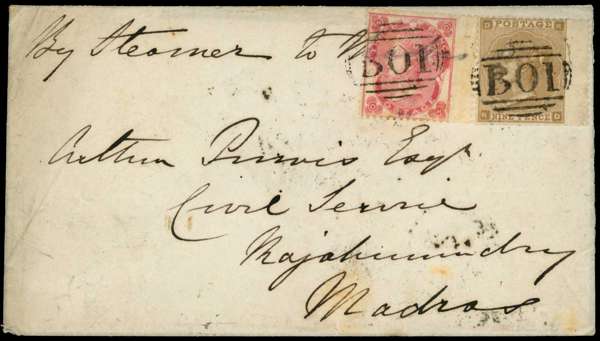 By Steamer to
B01
POSTAGE
B01
NINE PENCE
Arthur Purvis Esqr
Civil Service
Rajahmundry
Madras